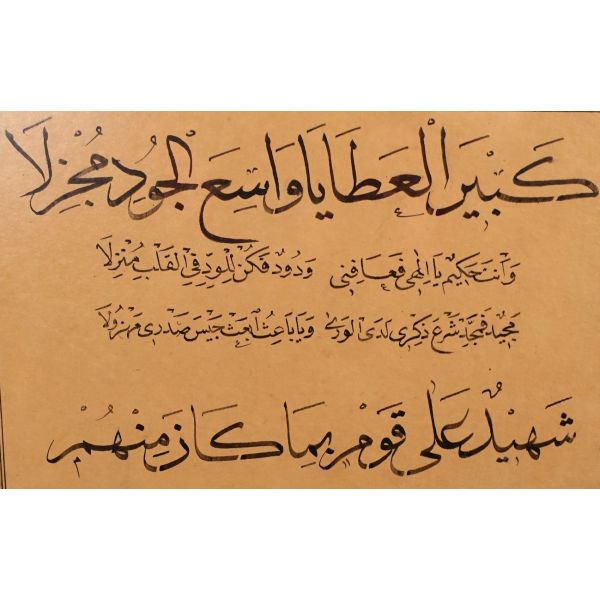 كَبِيرَ الْعَطَايَا وَاسِعَ الْجُودِ مُجْزِلَا
وَأَنتَ حَكِيمٌ يَا إِلٰهِي فَعَافِنِي وَدُودٌ فَكُنْ لِلْوِدِّ فِي الْقَلْبِ مُنْزِلَا
مَجِيدٌ فَمَجِّدْ شَرْعَ ذِكْرِي لَدَى الْوَرَى وَيَا بَاعِثُ ابْعَثْ جَيْشَ صَدْرِي مَهْزُولَا
شَهِيدٌ عَلَى قَوْمٍ بِمَا كَانَ مِنْهُمْ